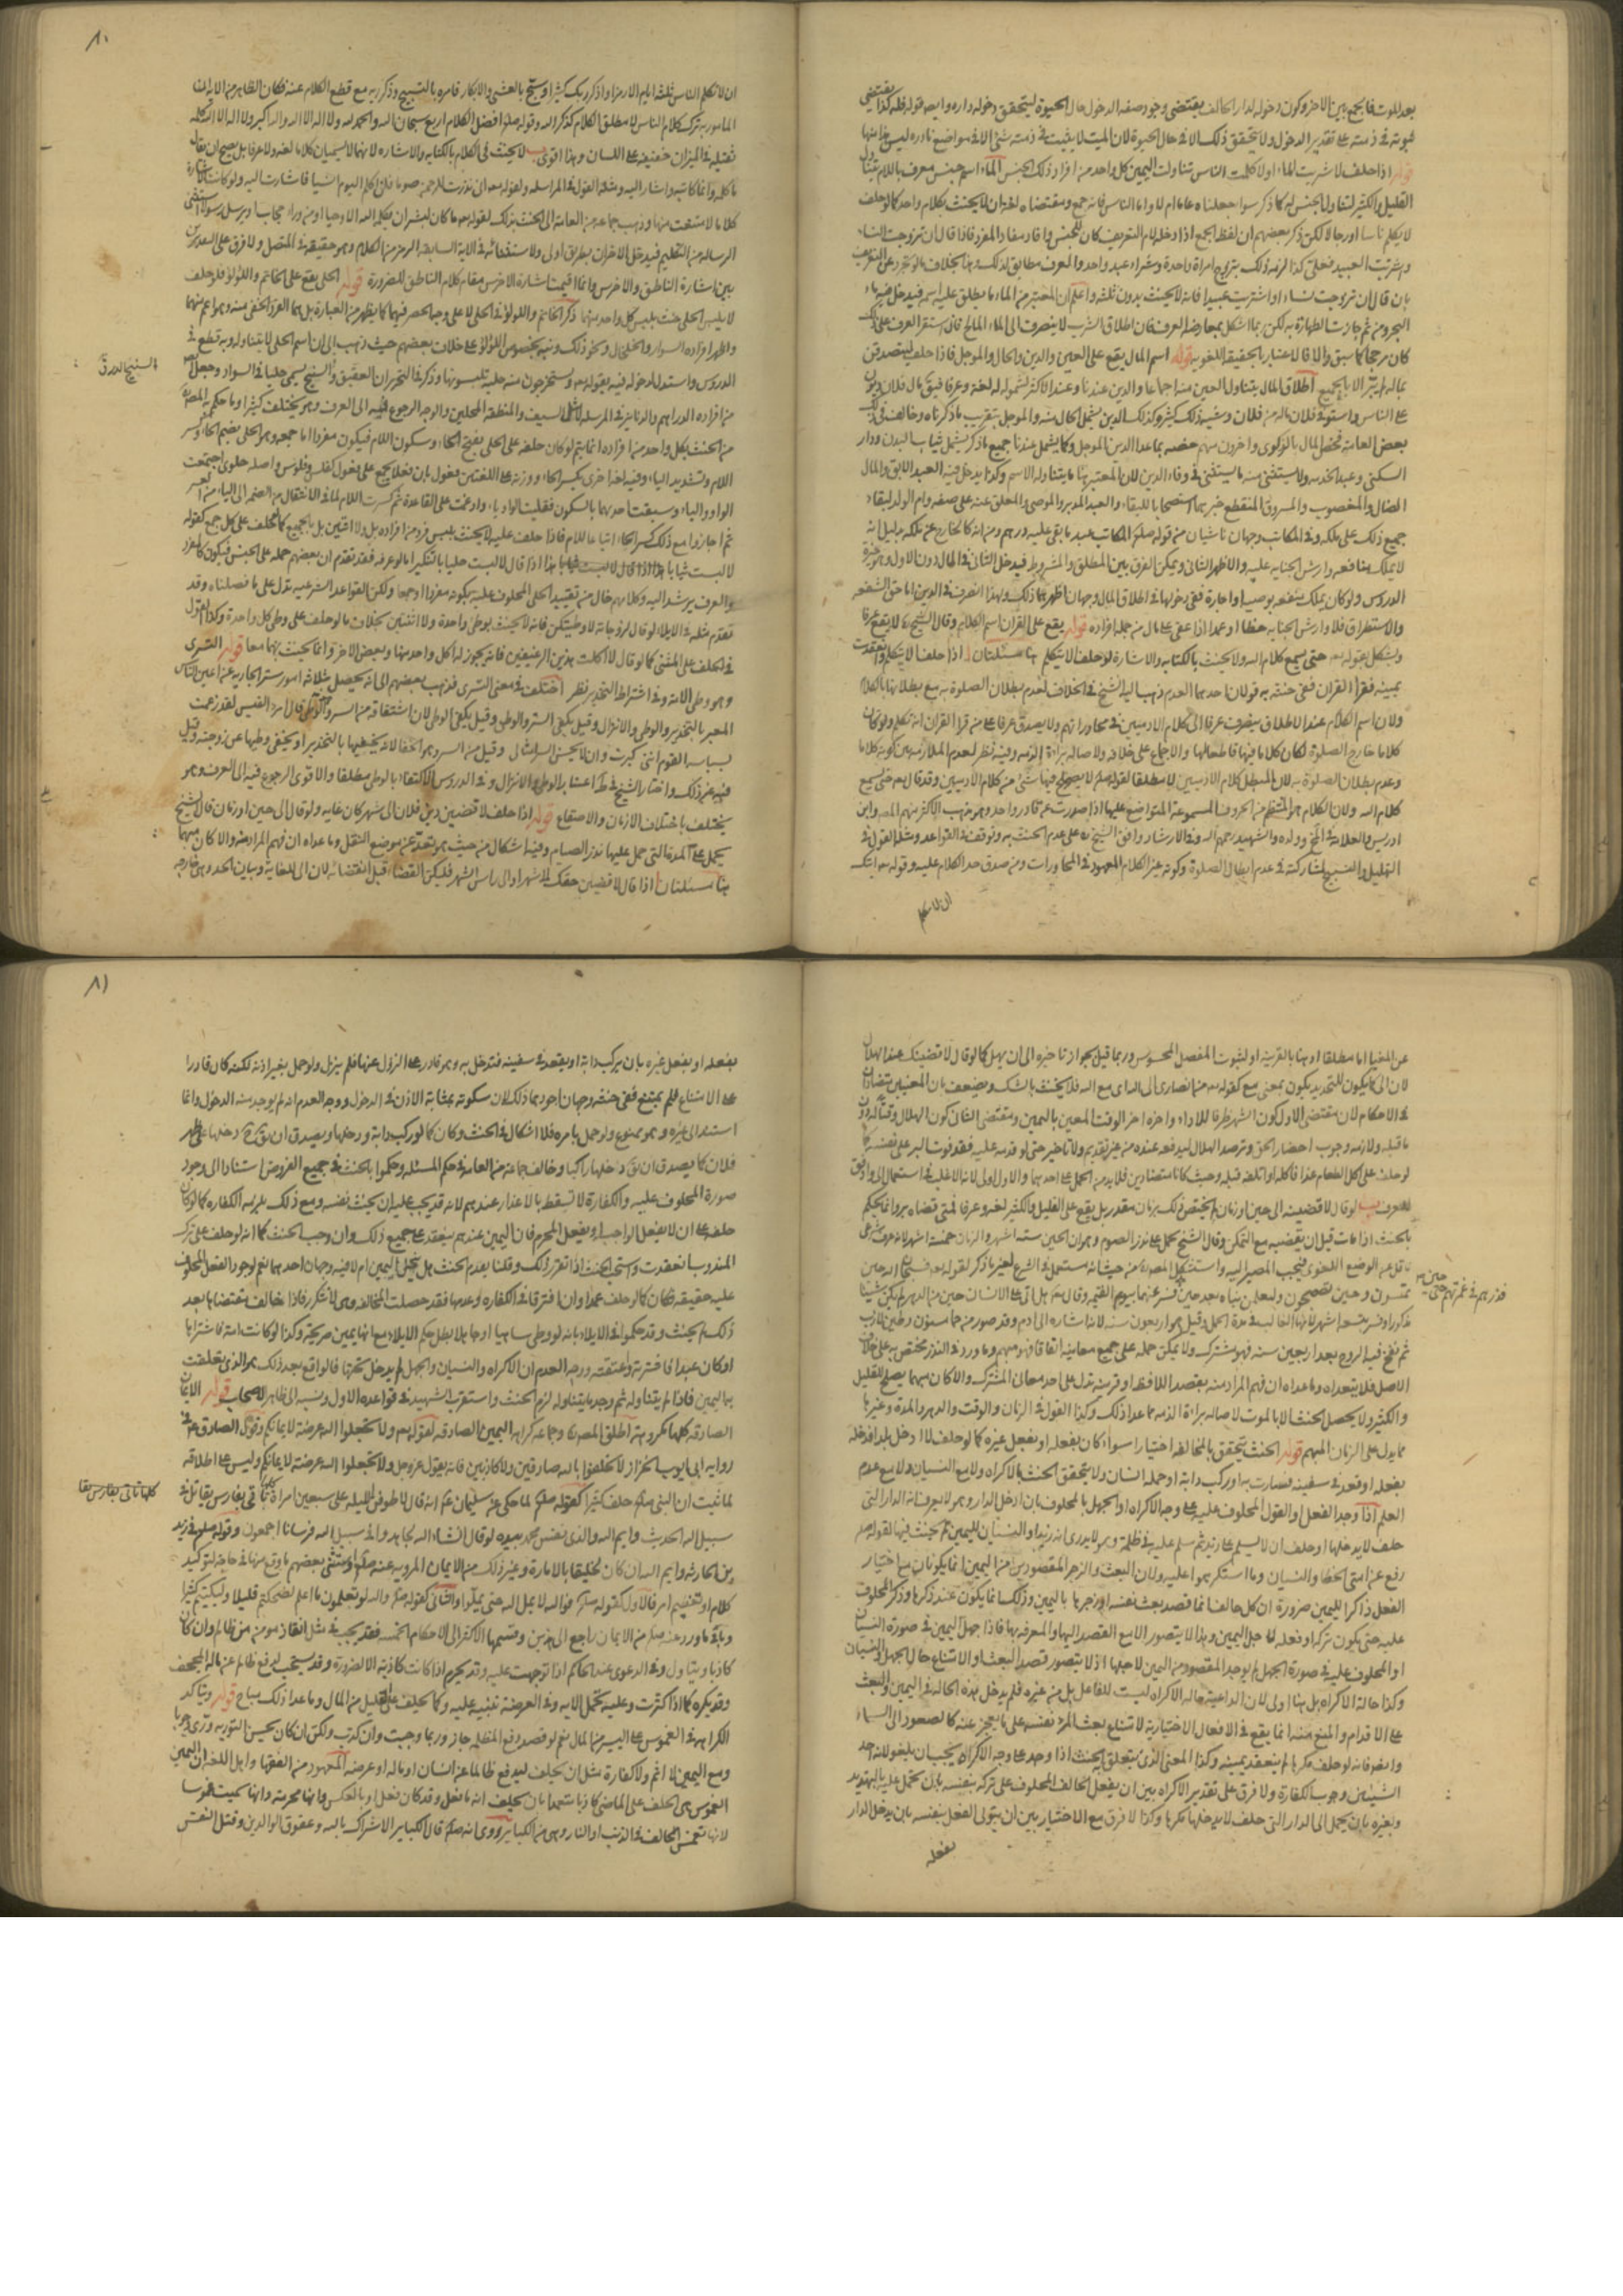 بعد الموت فالجمع بين الاخر وكون دخوله لدار الحالف يقتضى وجود صفة الدخول حال الحيوة ليتحقق دخوله داره وايضا قوله فله كذا يقتضى
ثبوته فى ذمته على تقدير الدخول ولا يتحقق ذلك الا فى حال الحيوة لان الميت لا يثبت فى ذمته شئ الا فى مواضع نادرة ليس هذا منها
قوله اذا حلف لا شربت الماء او لا كلمت الناس تناولت اليمين كل واحد من افراد ذلك الجنس الماء اسم جنس معرف باللام
القليل والكثير لتناول الجنس له كما ذكر سوا جعلناه عاما ام لا واما الناس فانه جمع ومقتضاه لغة ان لا يحنث بكلام واحد كما لو حلف
لا يكلم ناسا او رجالا لكن ذكر بعضهم ان لفظ الجمع اذا دخله لام التعريف كان للجنس وافاد مفاد المفرد فاذا قال ان تزوجت النساء
او شريت العبيد فعلى كذا لزمه ذلك بتزويج امراة واحدة وشراء عبد واحد والعرف مطابق لذلك وهذا بخلاف ما لو تجرد عن التعريف
بان قال ان تزوجت نساء او اشتريت عبيدا فانه لا يحنث بدون ثلثه واعلم ان المعتبر من الماء ما يطلق عليه اسمه فيدخل فيه ماء
البحر ومن ثم جازت الطهارة به لكن ربما اشكل بمعارضة العرف فان اطلاق الشرب لا ينصرف الى الماء المالح فان استقر العرف على ذلك
كان مرجحا كما سبق والا فالاعتبار بالحقيقة اللغوية قوله اسم المال يقع على العين والدين والحال والموجل فاذا حلف ليتصدقن
بماله لم يبر الا بالجميع اطلاق المال يتناول العين منه اجماعا والدين عندنا وعند الاكثر لشموله له لغة وعرفا فيق مال فلان ديون
على الناس واستوفى فلان ماله من فلان وشبه ذلك كثير وكذلك الدين يشمل الحال منه والموجل بتقريب ما ذكرناه وخالف فى ذلك
بعض العامة فخص المال بالزكوى واخرون منهم خصه بما عدا الدين الموجل وكما يشمل عندنا جميع ما ذكر يشمل ثياب البدن ودار
السكنى وعبد الخدمه ولا يستثنى منه ما يستثنى فى وفاء الدين لان المعتبر هنا ما يتناوله الاسم وكذا يدخل فيه العبد الابق والمال
الضال والمغصوب والمسروق المنقطع خبرهما استصحابا للبقاء والعبد المدبر والموصى به والمعلق عتقه على صفة وام الولد لبقاء
جميع ذلك على ملكه وفى المكاتب وجهان ناشيان من قوله صلى الله المكاتب عبد ما بقى عليه درهم ومن انه كالخارج عن ملكه بدليل انه
لا يملك منافعه وارش الجنايه عليه والاظهر الثانى ويمكن الفرق بين المطلق والمشروط فيدخل الثانى فى المال دون الاول
الدروس ولو كان يملك منفعه بوصيه او اجارة ففى دخولها فى اطلاق المال وجهان اظهرهما ذلك وبهذا الفرق فى الدين اما حق الشفعه
والاستطراق فلا وارش الجناية خطا او عمدا اذا عفى على مال من جمله افراده قوله يقع على القران اسم الكلام وقال الشيخ لا يقع عرفا
ويشكل بقوله تعالى حتى يسمع كلام الله ولا يحنث بالكتابة والاشارة لو حلف الا يتكلم هنا مسئلتان اذا حلف الا يتكلم وانعقدت
يمينه فقرا القران ففى حنثه به قولان احدهما العدم ذهب اليه الشيخ فى الخلاف لعدم بطلان الصلوة به مع بطلانها بالكلام
ولان اسم الكلام عند الاطلاق ينصرف عرفا الى كلام الادميين فى محاوراتهم ولا يصدق عرفا على من قرا القران انه تكلم ولو كان
كلاما خارج الصلوة لكان كلاما فيها قاطعا لها والاجماع على خلافه ولاصالة براءة الذمه وفيه نظر لعدم الملازمة بين كونه كلاما
وعدم بطلان الصلوة به لان المبطل كلام الادميين لا مطلقا لقوله صلى الله لا يصلح فيها شئ من كلام الادميين وقد قال تعالى حتى يسمع
كلام الله ولان الكلام هو المنتظم من الحروف المسموعة المتواضع عليها اذا صدرت عن قادر واحد وهو مذهب الاكثر منهم المصنف وابن
ادريس والعلامة فى المخ وولده والشهيد رحمهم الله وفى الارشاد وافق الشيخ على عدم الحنث به وتوقف فى القواعد ومثله القول فى
التهليل والتسبيح لمشاركته فى عدم ابطال الصلوة وكونه غير الكلام المعهود فى المحاورات ومن صدق حد الكلام عليه وقوله تعالى ايتك
ان لا تكلم
٨٠
ان لا تكلم الناس ثلثة ايام الا رمزا واذكر ربك كثيرا وسبح بالعشى والابكار فامره بالتسبيح وذكر ربه مع قطع الكلام عنه فكان الظاهر من الايه ان
المامور به ترك كلام الناس لا مطلق الكلام كذكر الله وقوله صلى الله افضل الكلام اربع سبحان الله والحمد لله ولا اله الا الله والله اكبر ولا اله الا الله كلمة
ثقيله فى الميزان خفيفة على اللسان وهذا اقوى ب لا يحنث فى الكلام بالكتابة والاشارة لانهما لا يسميان كلاما لغة ولا عرفا بل يصح ان يقال
ما كلمه وانما كاتبه واشار اليه ومثله القول فى المراسلة ولقوله تعالى انى نذرت للرحمن صوما فلن اكلم اليوم انسيا فاشارت اليه ولو كانت الاشارة
كلاما لامتنعت منها وذهب جماعة من العامة الى الحنث بذلك لقوله تعالى وما كان لبشر ان يكلمه الله الا وحيا او من وراء حجاب او يرسل رسولا استثنى
الرسالة من التكليم فيدخل الاخران بطريق اولى ولاستثنائه فى الاية السابقة الرمز من الكلام وهو حقيقة فى المتصل ولا فرق على التقديرين
بين اشارة الناطق والاخرس وانما اقيمت اشارة الاخرس مقام كلام الناطق للضرورة قوله الحلى يقع على الخاتم واللؤلؤ فلو حلف
لا يلبس الحلى حنث بلبس كل واحد منهما ذكر الخاتم واللؤلؤ فى الحلى لا على وجه الحصر فيهما كما يظهر من العبارة بل هما الفرد الخفى منه وهو اعم منهما
واظهر افراده السوار والخلخال ونحو ذلك ونبه بخصوص اللؤلؤ على خلاف بعضهم حيث ذهب الى ان اسم الحلى لا يتناوله وبه قطع فى
الدروس واستدل لدخوله فيه بقوله تعالى وتستخرجون منه حلية تلبسونها وذكر فى التحرير ان العقيق والسبج يسمى حليا فى السواد وجعل بعضهم
السبج الدرق
من افراده الدراهم والدنانير فى المرسلة لا مثل السيف والمنطقة المحليين والوجه الرجوع فيه الى العرف وهو يختلف كثيرا وما حكم به المصنف
من الحنث بكل واحد من افراده انما يتم لو كان حلفه على الحلى بفتح الحاء وسكون اللام فيكون مفردا اما جمعه وهو الحلى بضم الحاء وكسر
اللام وتشديد الياء وفيه لغة اخرى بكسر الحاء ووزنه على اللغتين فعول بان فعلا يجمع على فعول كفلس وفلوس واصله حلوى اجتمعت
الواو والياء وسبقت احدهما بالسكون فقلبت الواو ياء وادغمت على القاعدة ثم كسرت اللام لما فى الانتقال من الضمة الى الياء من العسر
ثم اجازوا مع ذلك كسر الحاء اتباعا للام فاذا حلف عليه لا يحنث بلبس فرد من افراده بل ولا اثنين بل بالجميع كالحلف على كل جمع كقوله
لا لبست ثيابا هذا اذا قال لا لبست حليا بالتنكير اما لو عرفه فقد تقدم ان بعضهم حمله على الجنس فيكون كالمفرد
والعرف يرشد اليه وكلامهم خال من تقييد الحلى المحلوف عليه بكونه مفردا او جمعا ولكن القواعد الشرعيه تدل على ما فصلناه وقد
تقدم مثله فى الايلاء لو قال لزوجاته لا وطيتكن فانه لا يحنث بوطى واحدة ولا اثنتين بخلاف ما لو حلف على وطى كل واحدة وكذا القول
فى الحلف على المثنى كما لو قال لا اكلت هذين الرغيفين فانه يجوز له اكل واحد منهما وبعض الاخر وانما يحنث بهما معا قوله التسرى
هو وطى الامة وفى اشتراط التخدير نظر اختلف فى معنى التسرى فذهب بعضهم الى انه يحصل بثلاثة امور ستر الجارية عن اعين الناس
المعبر بالتخدير والوطى والانزال وقيل يكفى الستر والوطى وقيل يكفى الوطى لان اشتقاقه من السر وهو الوطى قال امرؤ القيس لقد زعمت
بسباسه القوم اننى كبرت وان لا يحسن السر امثالى وقيل من السر وهو اخفاء لانه يخفيها بالتخدير او يخفى وطيها عن زوجته وقيل
فيه غير ذلك واختار الشيخ فى ط اعتبار الوطى والانزال وفى الدروس الاكتفاء بالوطى مطلقا والاقوى الرجوع فيه الى العرف وهو
يختلف باختلاف الازمان والاصقاع قوله اذا حلف لاقضين دين فلان الى شهر كان غايه ولو قال الى حين او زمان قال الشيخ
يحمل على المدة التى حمل عليها نذر الصيام وفيه اشكال من حيث هو تعد عن موضع النقل وما عداه ان فهم المراد منه والا كان مبهما
هنا مسئلتان اذا قال لاقضين حقك الى شهر او الى راس الشهر فليكن القضاء قبل انقضائه لان الى للغايه وبيان الحد وهى خارجه
عن المغيا اما مطلقا او هنا بالقرينة او لثبوت المفصل المحسوس وربما قيل بجواز تاخيره الى ان يهل كما لو قال لاقضينك عند الهلال
لان الى كما يكون للتحديد يكون بمعنى مع كقوله تعالى من انصارى الى الله اى مع الله فلا يحنث بالشك ويضعف بان المعنيين متضادان
فى الاحكام لان مقتضى الاول كون الشهر ظرفا للاداء واخره اخر الوقت المعين باليمين ومقتضى الثانى كون الهلال وقتا له دون
ما قبله ولازمه وجوب احضار الحق وترصد الهلال ليدفعه عنده من غير تقديم ولا تاخير حتى لو قدمه عليه فقد فوت البر على نفسه كما
لو حلف على اكل الطعام غدا فاكله او اتلفه قبله وحيث كانا متضادين فلا بد من الحمل على احدهما والاول اولى لانه الاغلب فى استعمال الى واوفق
للعرف ب لو قال لاقضينه الى حين او زمان لم يختص ذلك بزمان مقدر بل يقع على القليل والكثير لغة وعرفا فمتى قضاه بر وانما يحكم
بالحنث اذا مات قبل ان يقضيه مع التمكن وقال الشيخ يحمل على نذر الصوم وهو ان الحين ستة اشهر والزمان خمسة اشهر لانه عرف شرعى
ناقل عن الوضع اللغوى فيجب المصير اليه واستشكل المصنف من حيث انه مستعمل فى الشرع لغير ما ذكر لقوله تعالى فسبحان الله حين
فذرهم فى غمرتهم حتى حين
تمسون وحين تصبحون ولتعلمن نباه بعد حين فسر عنهما بيوم القيمة وقال تعالى هل اتى على الانسان حين من الدهر لم يكن شيئا
مذكورا وفسر بتسعة اشهر لانها الغالب فى مدة الحمل وقيل هو اربعون سنة لانه اشارة الى ادم وقد صور من حما مسنون وطين لازب
ثم نفخ فيه الروح بعد اربعين سنة فهو مشترك ولا يمكن حمله على جميع معانيه اتفاقا فهو مبهم وما ورد فى النذر مختص به على خلاف
الاصل فلا يتعداه وما عداه ان فهم المراد منه بقصد اللافظ او قرينه تدل على احد معانى المشترك والا كان مبهما يصلح للقليل
والكثير ولا يحصل الحنث الا بالموت لاصالة براءة الذمه مما عدا ذلك وكذا القول فى الزمان والوقت والدهر والمدة وغيرها
مما يدل على الزمان المبهم قوله الحنث يتحقق بالمخالفة اختيارا سواء كان بفعله او بفعل غيره كما لو حلف لا ادخل بلدا فدخله
بفعله او قعد فى سفينه فسارت به او ركب دابة او حمله انسان ولا يتحقق الحنث بالاكراه ولا مع النسيان ولا مع عدم
العلم اذا وجد الفعل او القول المحلوف عليه على وجه الاكراه او الجهل بالمحلوف بان دخل الدار وهو لا يعرف انه الدار التى
حلف لا يدخلها او حلف ان لا يسلم على زيد ثم سلم عليه فى ظلمة وهو لا يدرى انه زيد او النسيان لليمين لم يحنث فيها لقوله صلى الله
رفع عن امتى الخطا والنسيان وما استكرهوا عليه ولان البعث والزجر المقصودين من اليمين انما يكونان مع اختيار
الفعل ذاكرا لليمين ضرورة ان كل حالف انما قصد بعث نفسه او زجرها باليمين وذلك انما يكون عند ذكرها وذكر المحلوف
عليه حتى يكون تركه او فعله لاجل اليمين وهذا لا يتصور الا مع القصد اليها والمعرفة بها فاذا جهل اليمين فى صورة النسيان
او المحلوف عليه فى صورة الجهل لم يوجد المقصود من اليمين لاجلها اذ لا يتصور قصد البعث او الامتناع حال الجهل والنسيان
وكذا حالة الاكراه بل هنا اولى لان الداعية حاله الاكراه ليست للفاعل بل من غيره فلم يدخل هذه الحاله فى اليمين والبعث
على الاقدام والمنع منه انما يقع فى الافعال الاختيارية لامتناع بعث المرء نفسه على ما يعجز عنه كالصعود الى السماء
وايضا فانه لو حلف مكرها لم ينعقد يمينه وكذا المعنى الذى يتعلق به الحنث اذا وجد على وجه الاكراه يجب ان يلغو لانه احد
الشيئين وجوب الكفارة ولا فرق على تقدير الاكراه بين ان يفعل الحالف المحلوف على تركه بنفسه بان يحمل عليه بالتهديد
وبغيره بان يحمل الى الدار التى حلف لا يدخلها مكرها وكذا لا فرق مع الاختيار بين ان يتولى الفعل بنفسه بان يدخل الدار
بفعله
٨١
بفعله او بفعل غيره بان يركب دابة او يقعد فى سفينه فتدخل به وهو قادر على النزول عنها فلم ينزل ولو حمل بغير اذنه لكنه كان قادرا
على الامتناع فلم يمتنع ففى حنثه وجهان اجودهما ذلك لان سكوته بمثابة الاذن فى الدخول ووجه العدم انه لم يوجد منه الدخول وانما
استند الى غيره وهو ممنوع ولو حمل بامره فلا اشكال فى الحنث وكان كما لو ركب دابة ودخلها ويصدق ان يق دخلها على ظهر
فلان كما يصدق ان يق دخلها راكبا وخالف جماعة من العامة فى حكم المسئلة وحكموا بالحنث فى جميع الفروض استنادا الى وجود
صورة المحلوف عليه والكفارة لا تسقط بالاعذار عندهم لانه قد يجب عليه ان يحنث نفسه ومع ذلك يلزمه الكفاره كما لو كان
حلفه على ان لا يفعل الواجب او يفعل المحرم فان اليمين عندهم ينعقد على جميع ذلك وان وجب الحنث كما انه لو حلف على ترك
المندوب انعقدت واستحب الحنث اذا تقرر ذلك وقلنا بعدم الحنث هل ينحل اليمين ام لا فيه وجهان احدهما نعم لوجود الفعل المحلوف
عليه حقيقة فكان كما لو حلف عمدا وان افترقا فى الكفاره وعدمها فقد حصلت المخالفة وهى لا تتكرر فاذا خالف مقتضاها بعد
ذلك لم يحنث وقد حكموا فى الايلاء بانه لو وطى ساهيا او جاهلا بطل حكم الايلاء مع انها يمين صريحة وكذا لو كانت امة فاشتراها
او كان عبدا فاشترته واعتقته ووجه العدم ان الاكراه والنسيان والجهل لم يدخل تحتها فالواقع بعد ذلك هو الذى تعلقت
به اليمين فاذا لم يتناوله ثم وجد ما يتناوله لزم الحنث واستقرب الشهيد فى قواعده الاول ونسبه الى ظاهر الاصحاب قوله الايمان
الصادقة كلها مكروهة اطلق المصنف وجماعة كراهة اليمين الصادقه لقوله تعالى ولا تجعلوا الله عرضة لايمانكم وقول الصادق فى
رواية ابى ايوب الخزاز لا تحلفوا بالله صادقين ولا كاذبين فانه يقول عز وجل ولا تجعلوا الله عرضة لايمانكم وليس على اطلاقه
لما ثبت ان النبى صلى الله حلف كثيرا كقوله صلى الله لما حكى عن سليمان انه قال لاطوفن الليلة على سبعين امراة كلها تاتى بفارس يقاتل فى
كلها تاتى بفارس يقا
سبيل الله الحديث وايم الله والذى نفس محمد بيده لو قال انشاء الله لجاهدوا فى سبيل الله فرسانا اجمعون وقوله صلعم فى زيد
بن الحارثة وايم الله ان كان لخليقا بالامارة وغير ذلك من الايمان المروية عنه صلى الله واستثنى بعضهم ما وقع منها فى حاجة لتوكيد
كلام او تعظيم امر فالاول كقوله صلى الله فوالله لا يمل الله حتى تملوا والثانى كقوله صلى الله والله لو تعلمون ما اعلم لضحكتم قليلا ولبكيتم كثيرا
وباقى ما ورد عنه صلعم من الايمان راجع الى هذين وقسمها الاكثر الى الاحكام الخمسه فقد يجب فى مثل انقاذ مومن من ظالم وان كان
كاذبا ويتاول وفى الدعوى عند الحاكم اذا توجهت عليه وقد يحرم اذا كانت كاذبة الا لضرورة وقد يستحب لدفع ظالم عن ماله المجحف
وقد يكره كما اذا كثرت وعليه يحمل الاية وفى العرضة تنبيه عليه وكما يحلف على القليل من المال وما عدا ذلك مباح قوله ويتاكد
الكراهة فى الغموس على اليسير من المال نعم لو قصد دفع المظلمة جاز وربما وجبت وان كذب ولكن ان كان يحسن التورية ورى وجوبا
ومع اليمين لا اثم ولا كفارة مثل ان يحلف ليدفع ظالما عن انسان او ماله او عرضه المعهود من الفقها واهل اللغة ان اليمين
الغموس هى الحلف على الماضى كاذبا متعمدا بان يحلف انه ما فعل وقد كان فعل او بالعكس وانها محرمة وانها سميت غموسا
لانها تغمس الحالف فى الذنب او النار وهى من الكبائر وروى انه صلعم قال الكبائر الاشراك بالله وعقوق الوالدين وقتل النفس